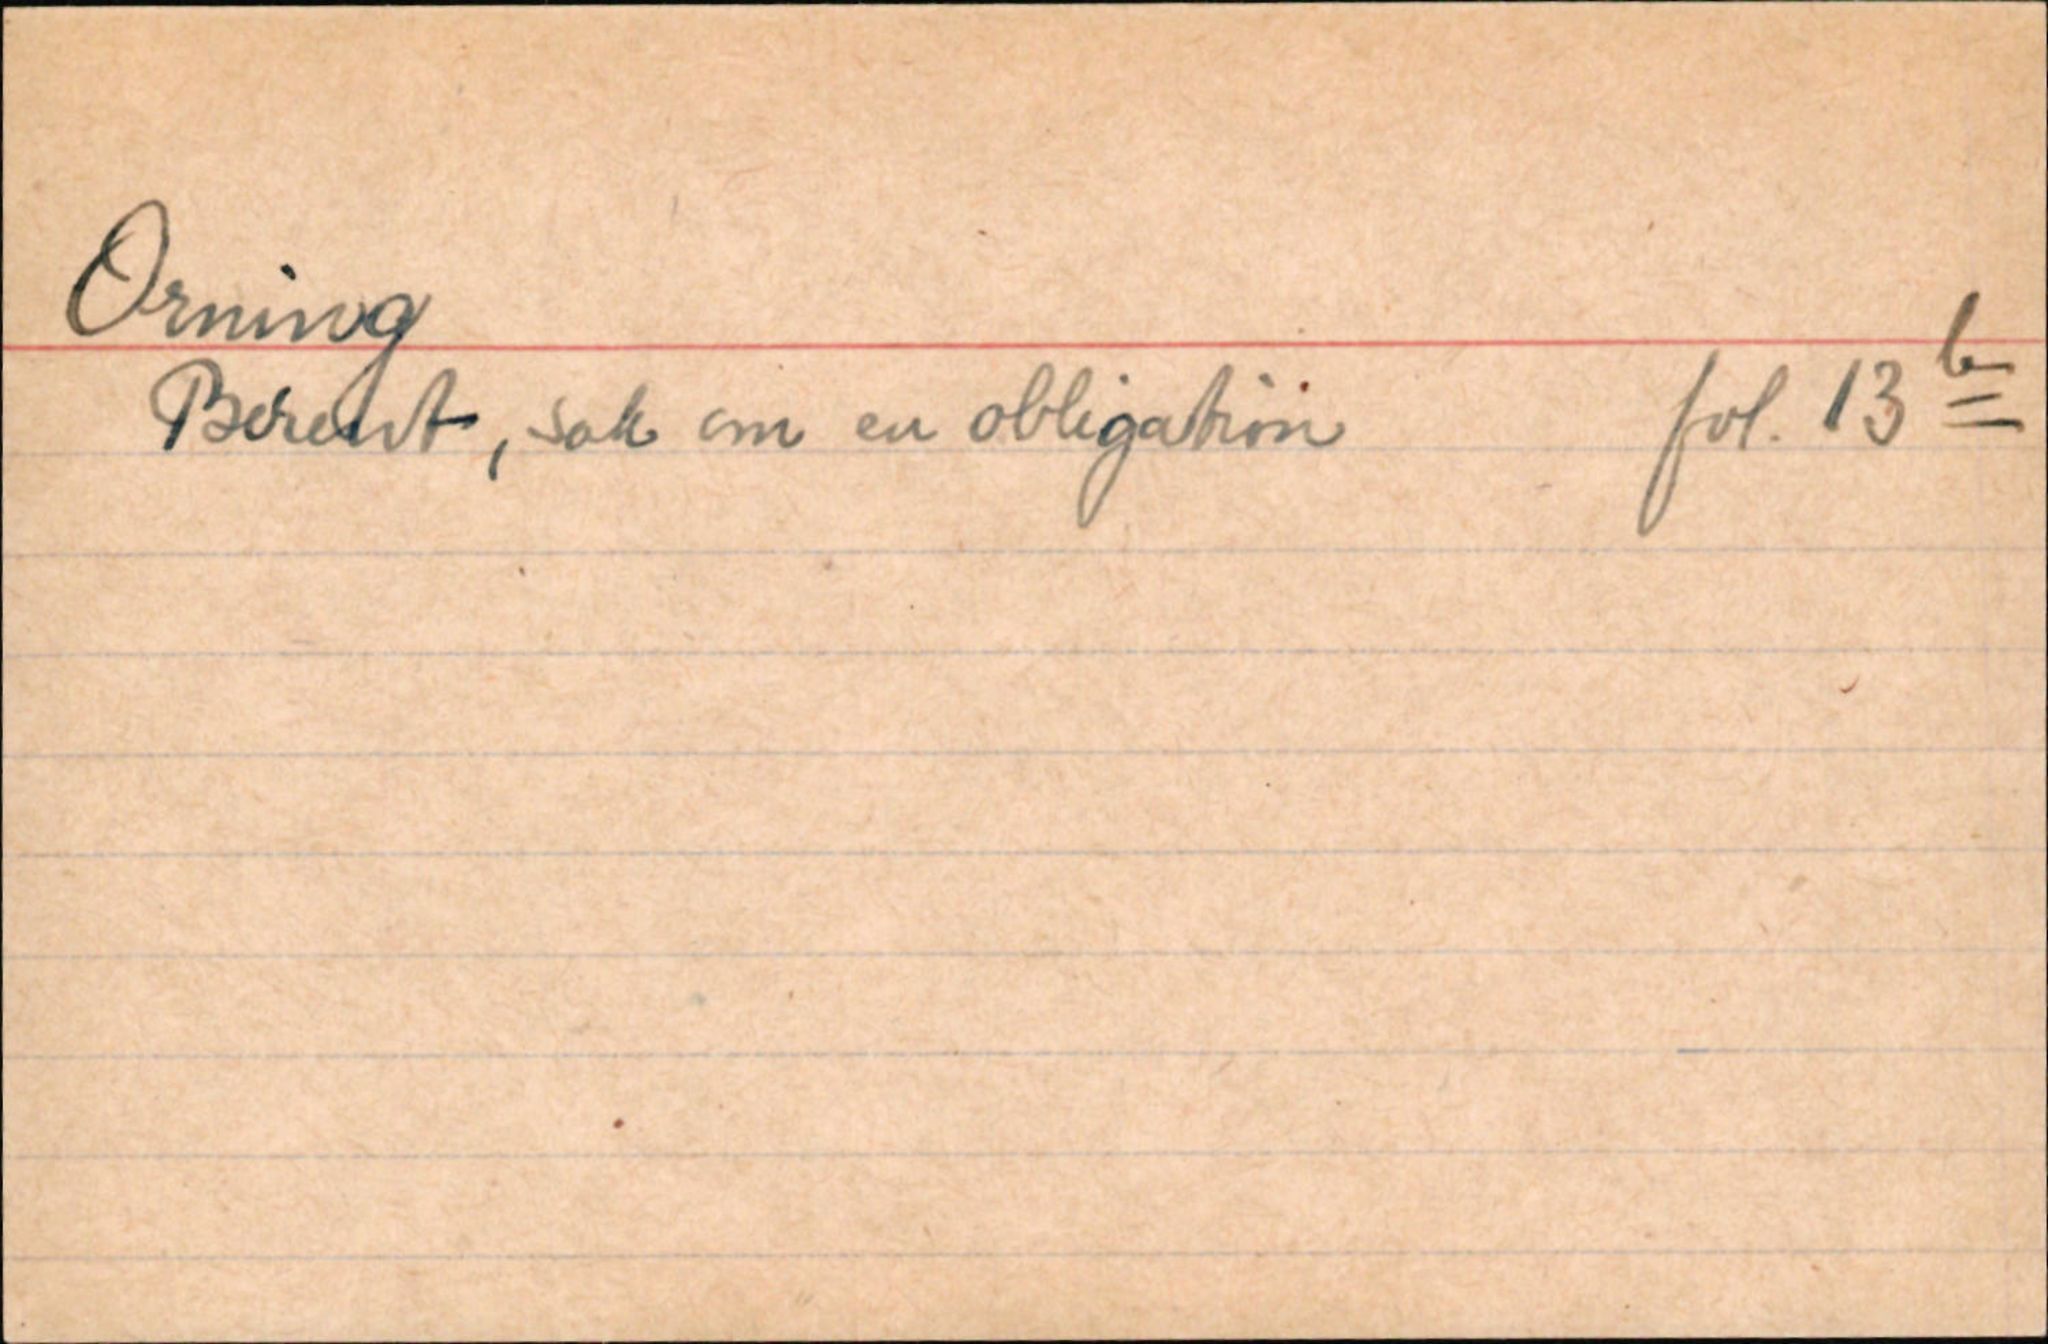 Orning
Berent, sak om en obligation fol. 13 b